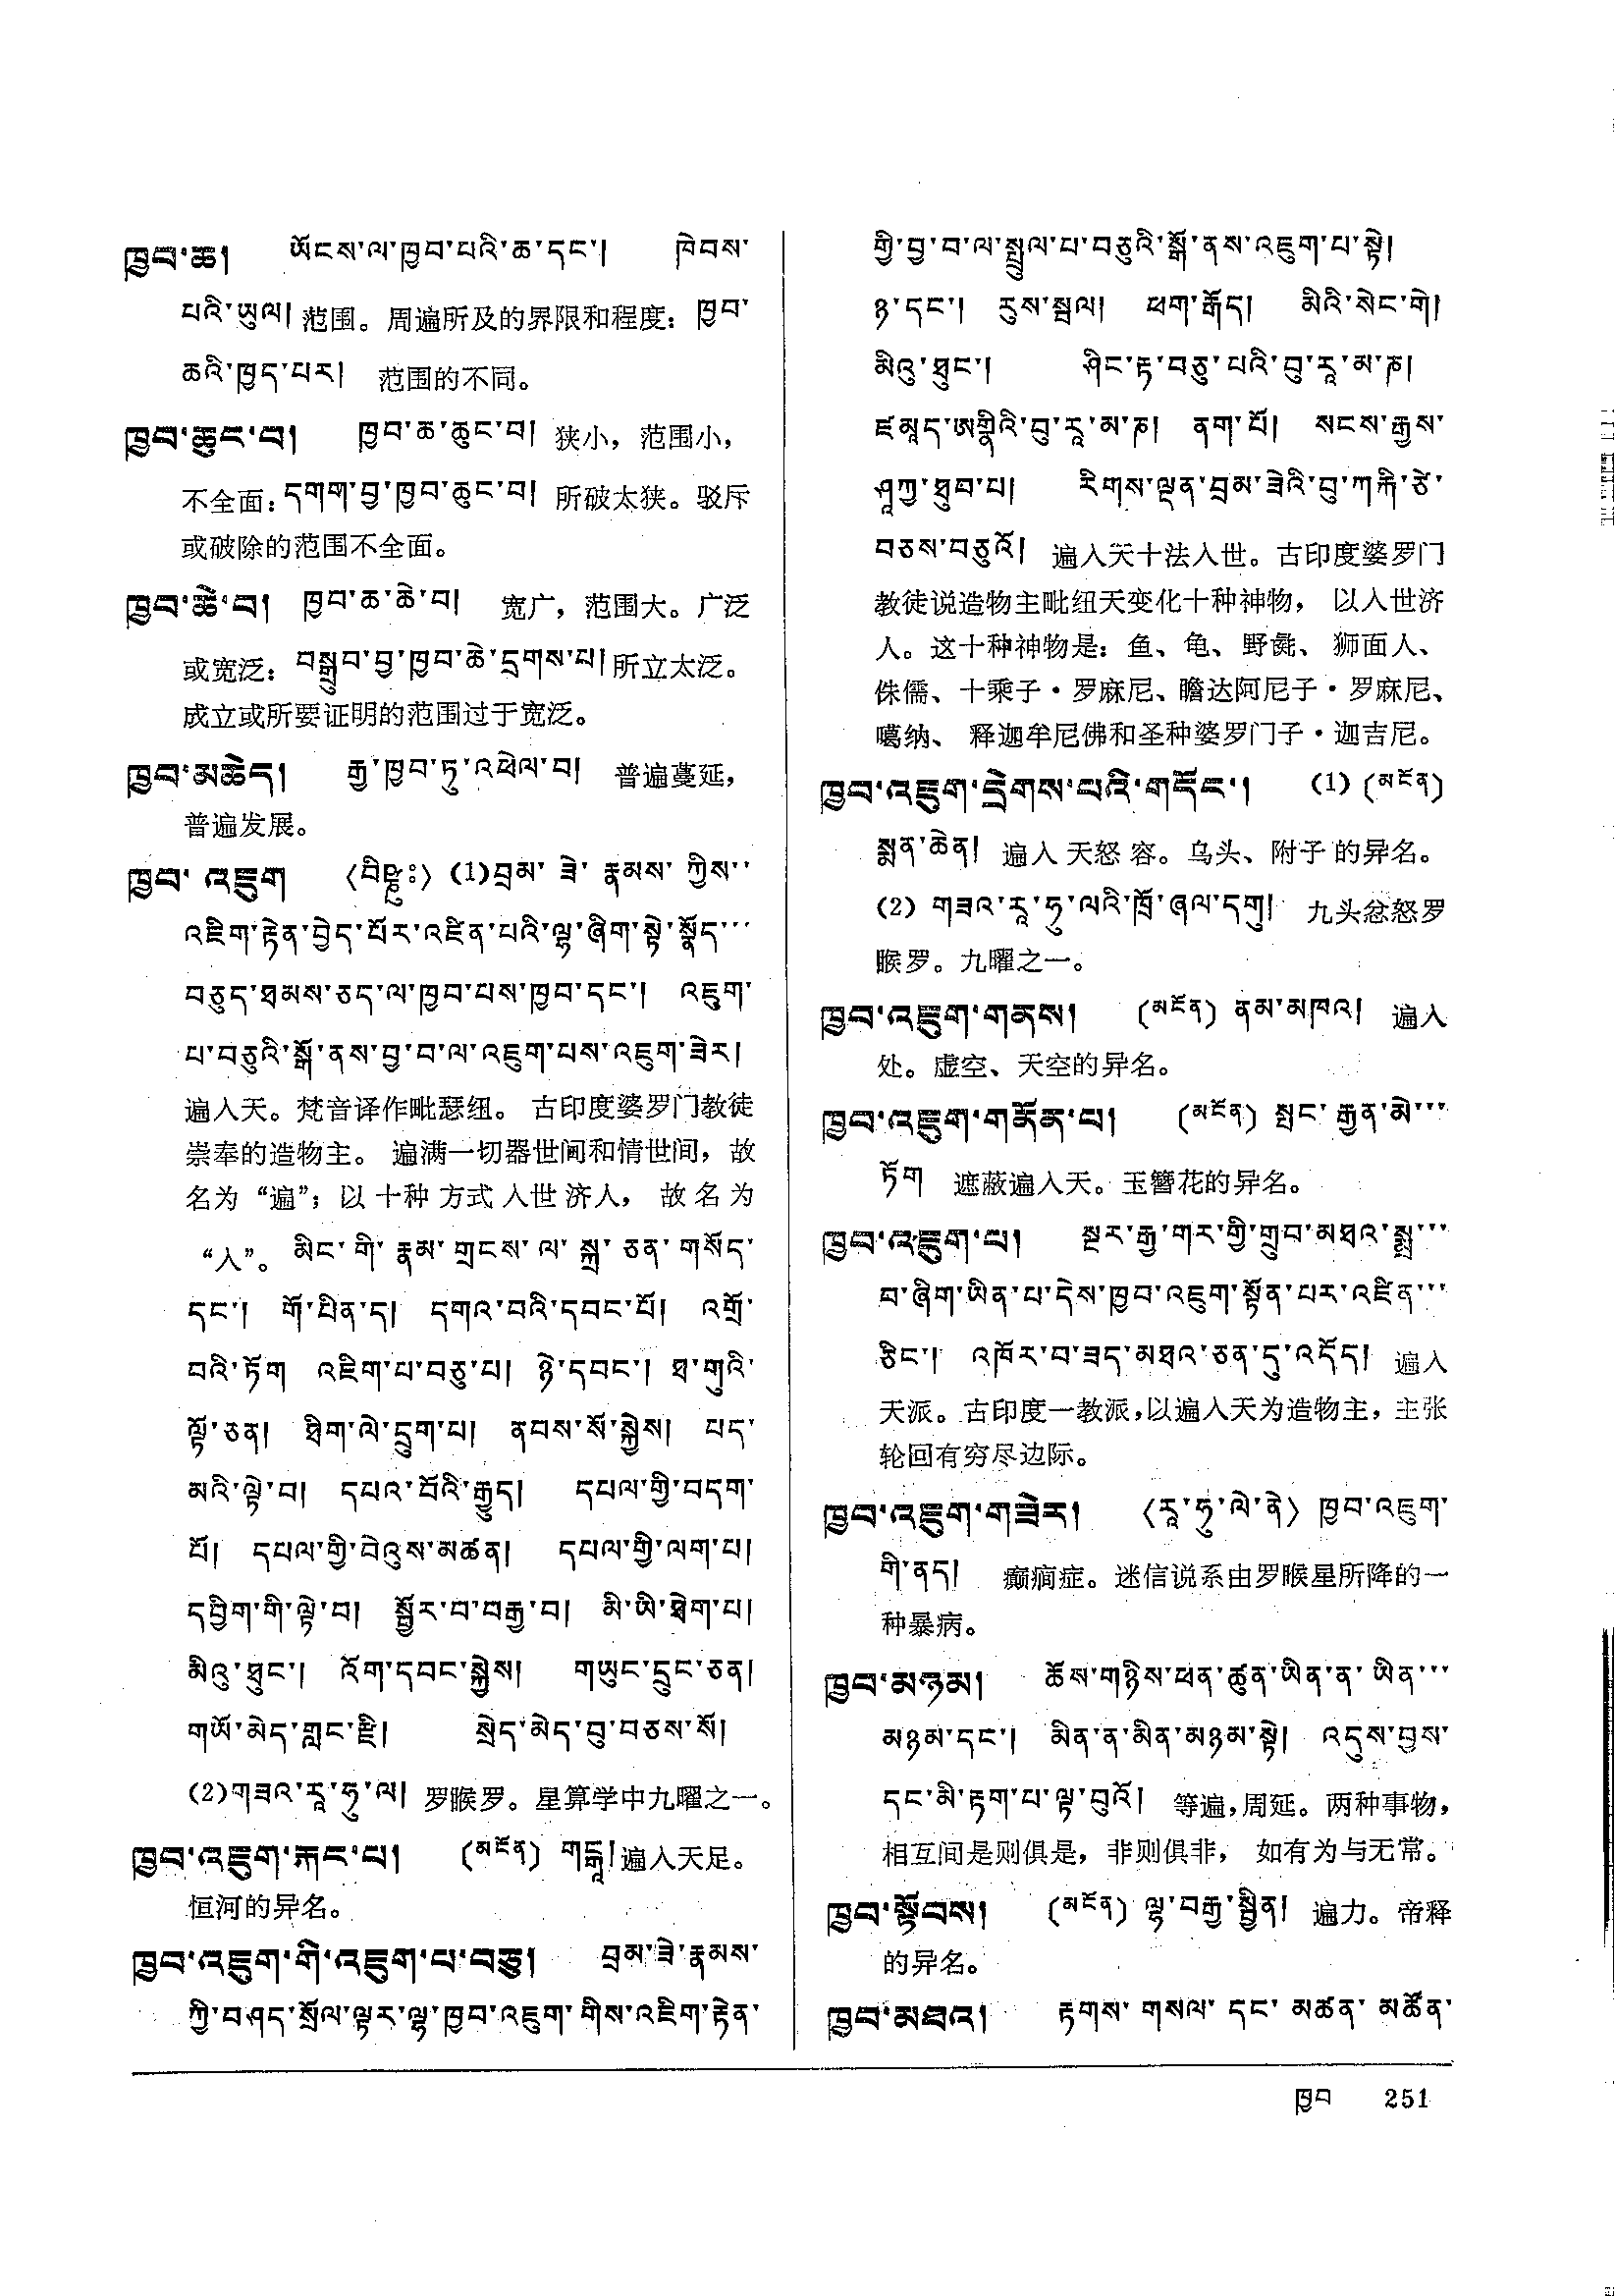 ཁྱབ་ཆ། ཡོངས་ལ་ཁྱབ་པའི་ཆ་དང་། ཁེབས་
པའི་ཡུལ། 范围。周遍所及的界限和程度：ཁྱབ་
ཆའི་ཁྱད་པར། 范围的不同。
ཁྱབ་ཆུང་བ། ཁྱབ་ཆ་ཆུང་བ། 狭小，范围小，
不全面：དགག་བྱ་ཁྱབ་ཆུང་བ། 所破太狭。驳斥
或破除的范围不全面。
ཁྱབ་ཆེ་བ། ཁྱབ་ཆ་ཆེ་བ། 宽广，范围大。广泛
或宽泛：བསྒྲུབ་བྱ་ཁྱབ་ཆེ་དྲགས་པ། 所立太泛。
成立或所要证明的范围过于宽泛。
ཁྱབ་མཆེད། རྒྱ་ཁྱབ་ཏུ་འཕེལ་བ། 普遍蔓延，
普遍发展。
ཁྱབ་ འཇུག (1)བྲམ་ ཟེ་ རྣམས་ ཀྱིས་་
འཇིག་རྟེན་བྱེད་པོར་འཛིན་པའི་ལྷ་ཞིག་སྟེ་སྣོད་་་
བཅུད་ཐམས་ཅད་ལ་ཁྱབ་པས་ཁྱབ་དང་། འཇུག་
པ་བཅུའི་སྒོ་ནས་བྱ་བ་ལ་འཇུག་པས་འཇུག་ཟེར།
遍入天。梵音译作毗瑟纽。古印度婆罗门教徒
崇奉的造物主。遍满一切器世间和情世间，故
名为“遍”；以十种方式入世济人，故名为
“入”。མིང་ གི་ རྣམ་ གྲངས་ ལ་ སྐྲ་ ཅན་ གསོད་
དང་། གོ་པིན་ད། དགའ་བའི་དབང་པོ། འགྲོ་
བའི་ཏོག འཇིག་པ་བཅུ་པ། ཉེ་དབང་། ཐ་གུའི་
ལྟོ་ཅན། ཐིག་ལེ་དྲུག་པ། ནབས་སོ་སྐྱེས། པད་
མའི་ལྟེ་བ། དཔའ་བོའི་རྒྱུད། དཔལ་གྱི་བདག་
པོ། དཔལ་གྱི་བེའུས་མཚན། དཔལ་གྱི་ལག་པ།
དབྱིག་གི་ལྟེ་བ། སྦྱོར་བ་བརྒྱ་བ། མི་ཡི་ཐེག་པ།
མིའུ་ཐུང་། འོག་དབང་སྐྱེས། གཡུང་དྲུང་ཅན།
གཡོ་མེད་གླང་རྫི། སྲེད་མེད་བུ་བཅས་སོ།
(2)གཟའ་རཱ་ཧུ་ལ། 罗睺罗。星算学中九曜之一。
ཁྱབ་འཇུག་རྐང་པ། (མངོན) གངྒཱ། 遍入天足。
恒河的异名。
ཁྱབ་འཇུག་གི་འཇུག་པ་བཅུ། བྲམ་ཟེ་རྣམས་
ཀྱི་བཤད་སྲོལ་ལྟར་ལྷ་ཁྱབ་འཇུག་གིས་འཇིག་རྟེན་
གྱི་བྱ་བ་ལ་སྤྲུལ་པ་བཅུའི་སྒོ་ནས་འཇུག་པ་སྟེ།
ཉ་དང་། རུས་སྦལ། ཕག་རྒོད། མིའི་སེང་གེ།
མིའུ་ཐུང་། ཤིང་རྟ་བཅུ་པའི་བུ་རཱ་མ་ཎ།
ཛམཱད་ཨགྣིའི་བུ་རཱ་མ་ཎ། ནག་པོ། སངས་རྒྱས་
ཤཱཀྱ་ཐུབ་པ། རིགས་ལྡན་བྲམ་ཟེའི་བུ་ཀརྐི་ཙེ་
བཅས་བཅུའོ། 遍入天十法入世。古印度婆罗门
教徒说造物主毗纽天变化十种神物，以入世济
人。这十种神物是：鱼、龟、野彘、狮面人、
侏儒、十乘子·罗麻尼、瞻达阿尼子·罗麻尼、
噶纳、释迦牟尼佛和圣种婆罗门子·迦吉尼。
ཁྱབ་འཇུག་དྲེགས་པའི་གདོང་། (1) (མངོན)
སྨན་ཆེན། 遍入天怒容。乌头、附子的异名。
(2) གཟའ་རཱ་ཧུ་ལའི་ཁྲོ་ཞལ་དགུ། 九头忿怒罗
睺罗。九曜之一。
ཁྱབ་འཇུག་གནས། (མངོན) ནམ་མཁའ། 遍入
处。虚空、天空的异名。
ཁྱབ་འཇུག་གནོན་པ། (མངོན) སྤང་ རྒྱན་མེ་་་
ཏོག 遮蔽遍入天。玉簪花的异名。
ཁྱབ་འཇུག་པ། སྔར་རྒྱ་གར་གྱི་གྲུབ་མཐའ་སྨྲ་་་
བ་ཞིག་ཡིན་པ་དེས་ཁྱབ་འཇུག་སྟོན་པར་འཛིན་་་
ཅིང་། འཁོར་བ་ཟད་མཐའ་ཅན་དུ་འདོད། 遍入
天派。古印度一教派，以遍入天为造物主，主张
轮回有穷尽边际。
ཁྱབ་འཇུག་གཟེར། 〈རཱ་ཧུ་ལེ་ནེ〉 ཁྱབ་འཇུག་
གི་ནད། 癫痫症。迷信说系由罗睺星所降的一
种暴病。
ཁྱབ་མཉམ། ཆོས་གཉིས་ཕན་ཚུན་ཡིན་ན་ ཡིན་་་
མཉམ་དང་། མིན་ན་མིན་མཉམ་སྟེ། འདུས་བྱས་
དང་མི་རྟག་པ་ལྟ་བུའོ། 等遍，周延。两种事物，
相互间是则俱是，非则俱非，如有为与无常。
ཁྱབ་སྟོབས། (མངོན) ལྷ་བརྒྱ་སྦྱིན། 遍力。帝释
的异名。
ཁྱབ་མཐའ། རྟགས་ གསལ་ དང་ མཚན་ མཚོན་
ཁྱབ 251